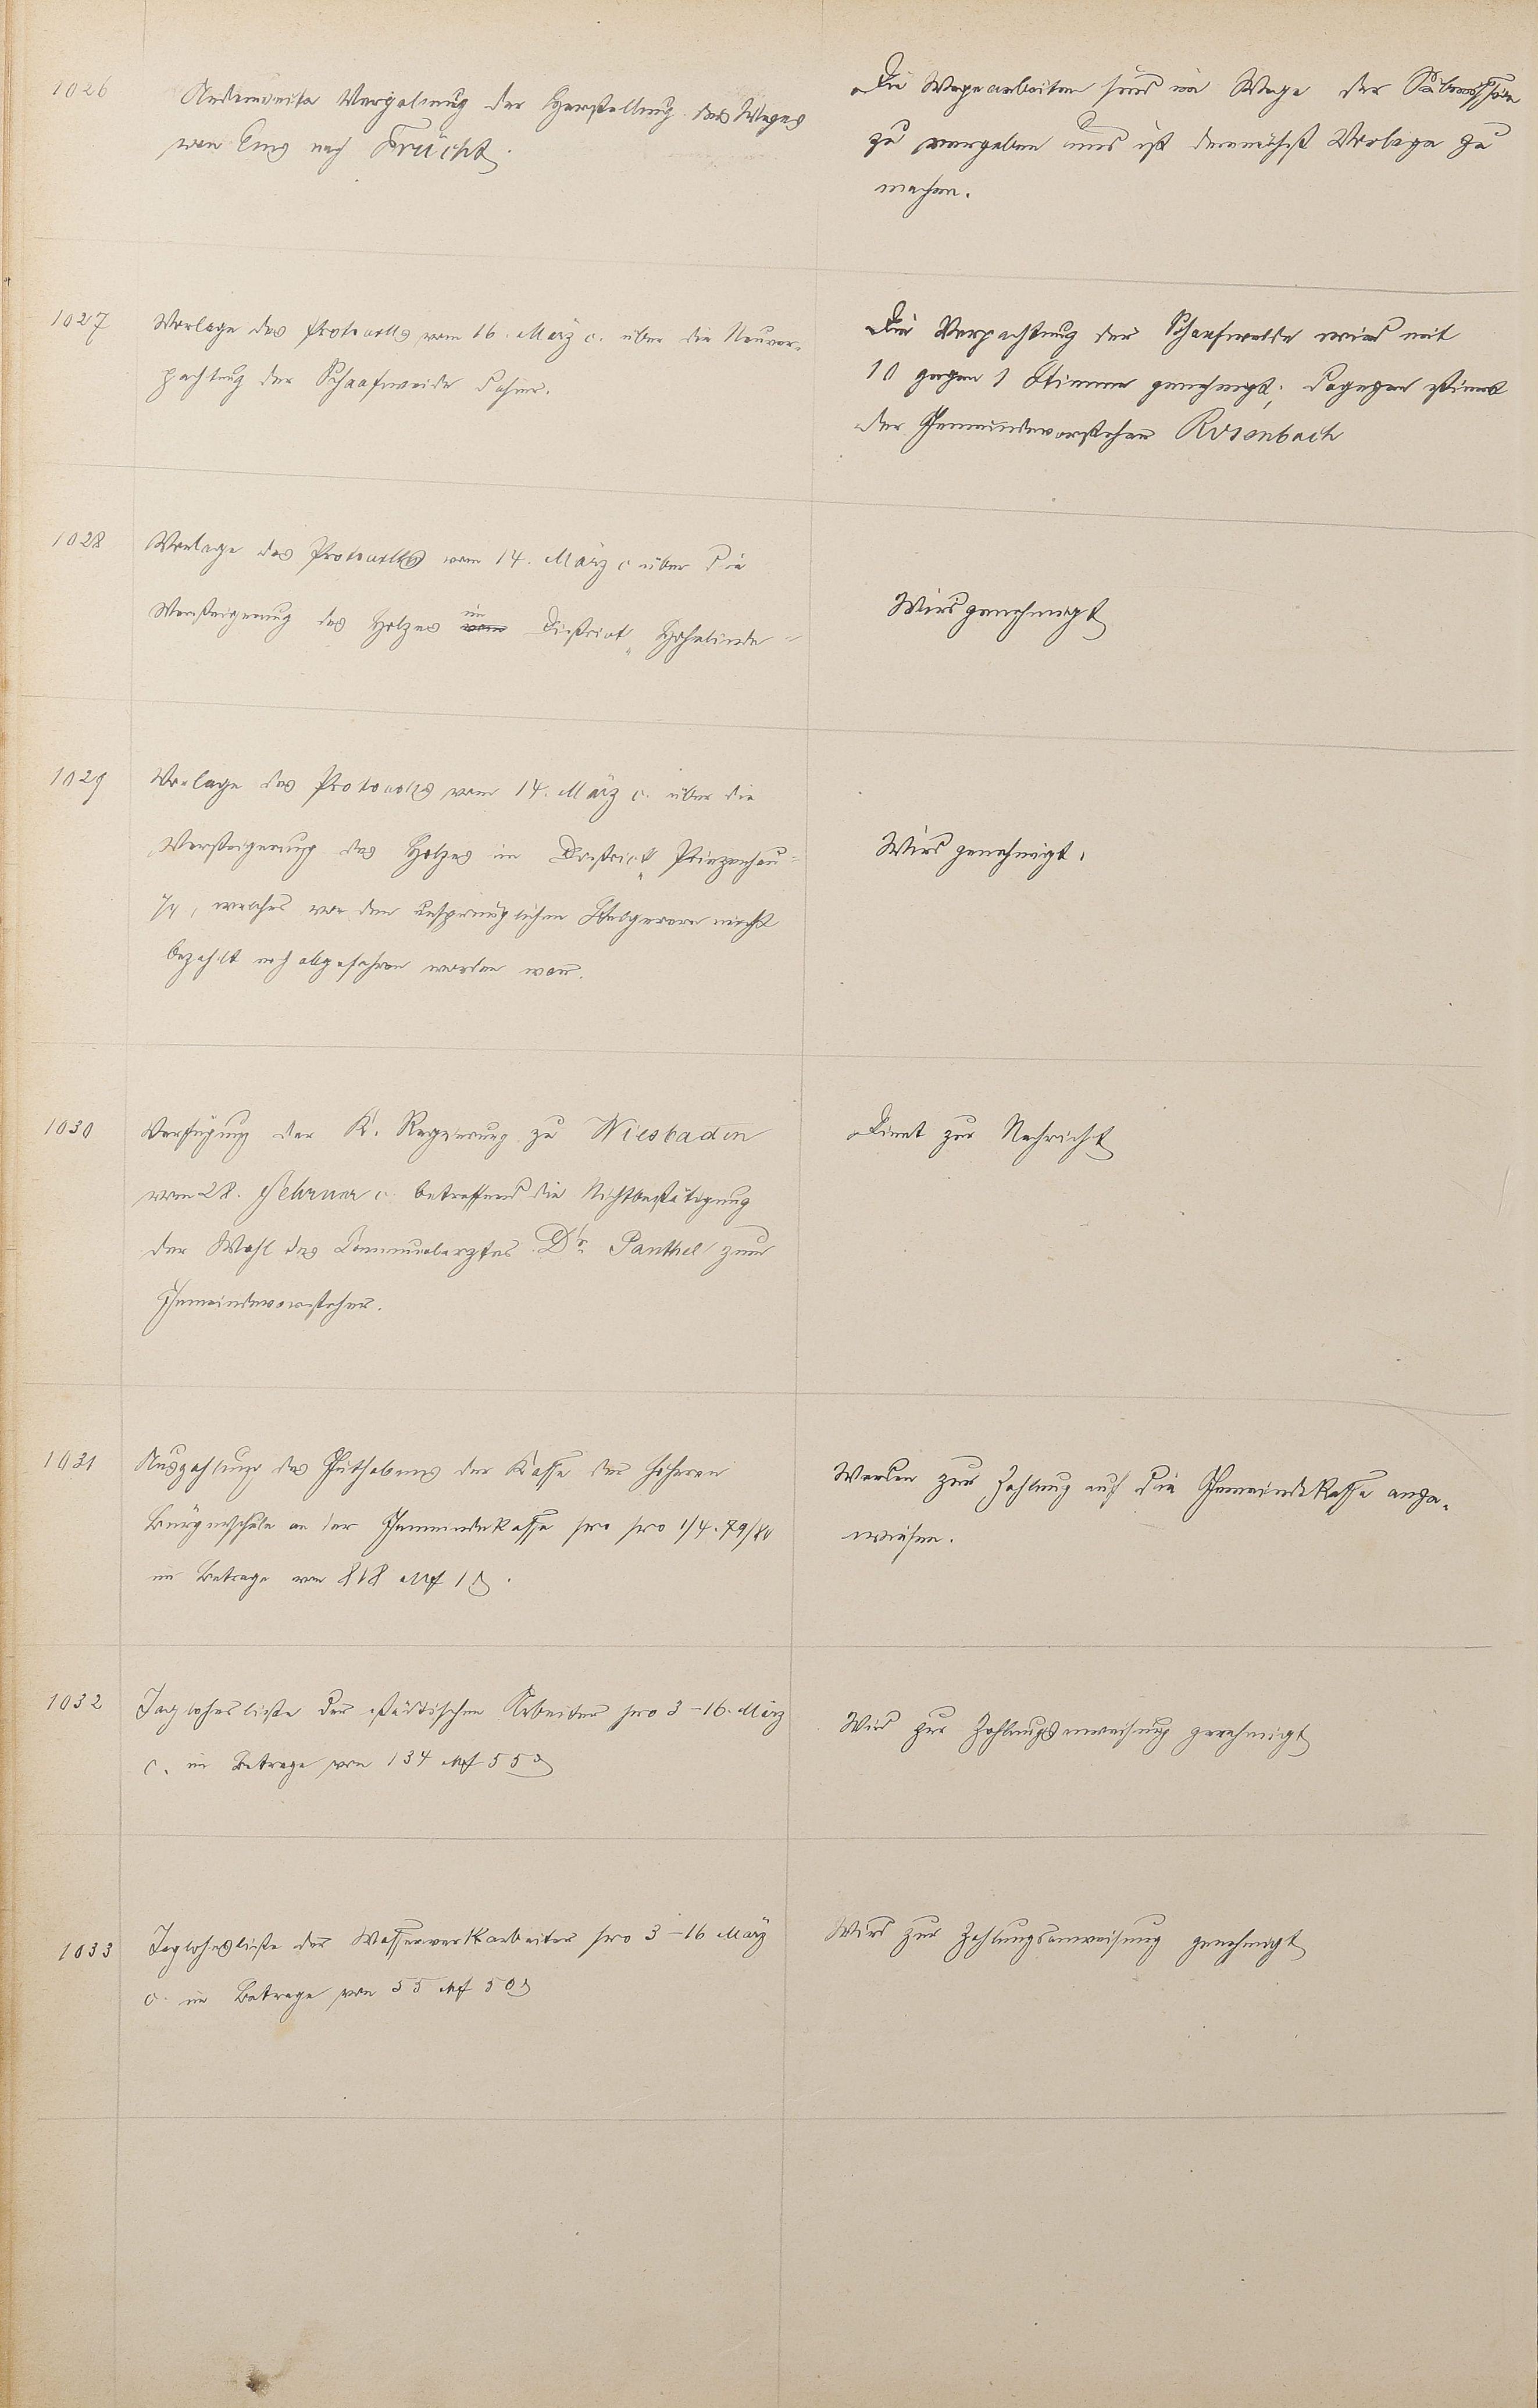 1026
Anderweite Vergebung der Herstellung des Weges
von Ems nach Frücht.
Die Wegearbeiten sind im Wege der Submission
zu vergeben und ist demnächst Vorlage zu
machen.
1027
Vorlage des Protocolls vom 16. März c. über die Neuver-
pachtung der Schaafweide dahier.
Die Verpachtung der Schaafweide wird mit
10 gegen 1 Stimme genehmigt; dagegen stimmt
der Gemeindevorsteher Rosenbach
1028
Vorlage des Protocolls vom 14. März c über die
Versteigerung des Holzes im District "Hohelinde"
Wird genehmigt
1029
Vorlage des Protocolls vom 14. März c. über die
Versteigerung des Holzes im District "Prinzenhau"
, welches von den ursprünglichen Steigerern nicht
bezahlt noch abgefahren worden war.
Wird genehmigt.
1030
Verfügung der K. Regierung zu Wiesbaden
vom 28. Februar c. betreffend die Nichtbestätigung
der Wahl des Communalarztes Dr. Panthel zum
Gemeindevorsteher.
Dient zur Nachricht
1031
Auszahlung des Guthabens der Kasse der höheren
Bürgerschule an der Gemeindekasse pro pro 1/4. 79/80
im Betrage von 818 Mk 1 ₰.
Werden zur Zahlung auf die Gemeindekasse ange-
wiesen.
1032
Taglohnsliste der städtischen Arbeiter pro 3-16. März
c. im Betrage von 134 Mk 55 ₰
Wird zur Zahlungsanweisung genehmigt
1033
Taglohnsliste der Wasserwerkarbeiter pro 3-16 März
c. im Betrage von 55 Mk 50 ₰
Wird zur Zahlungsanweisung genehmigt